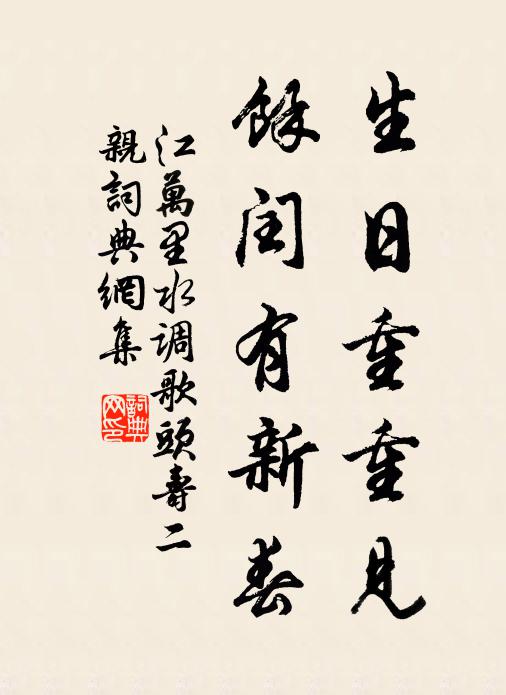 生日重重見
餘閏有新春
江萬里水调歌頭壽二
親詞典網集
詞典网印